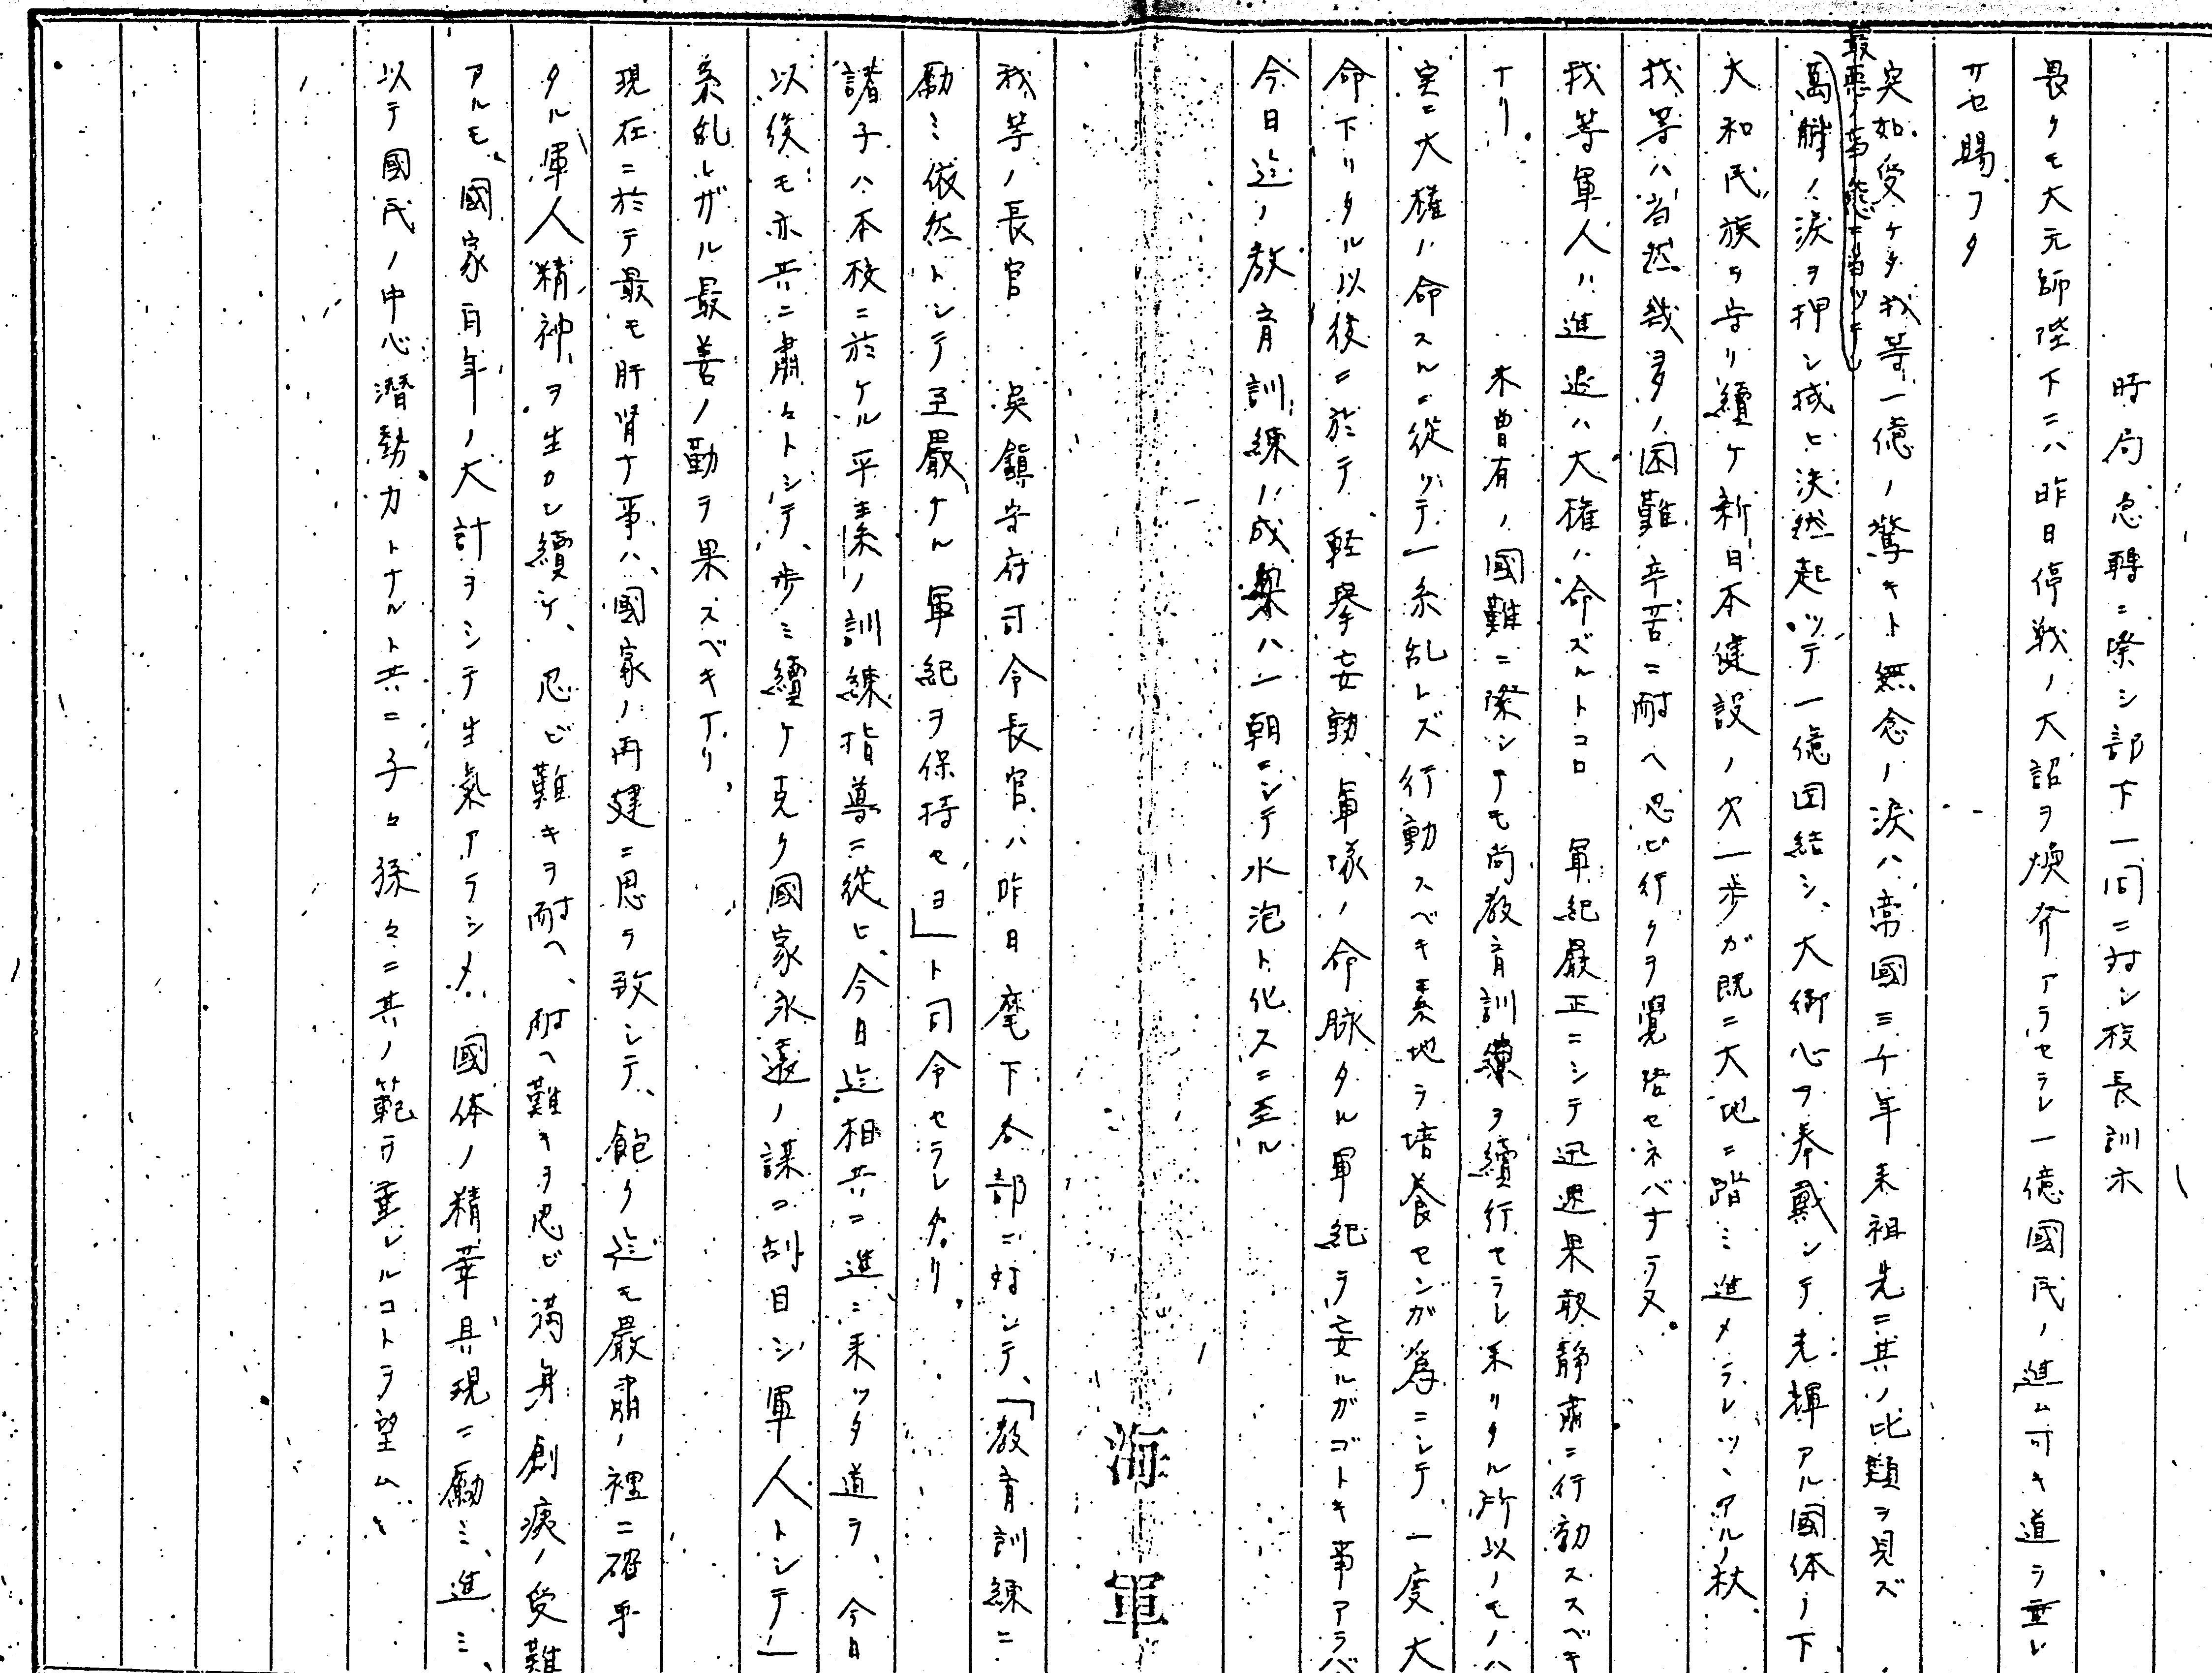 時局急轉ニ際シ部下一同ニ対シ校長訓示
畏クモ大元帥陛下ニハ昨日停戦ノ大詔ヲ煥発アラセラレ一億國民ノ進ム可キ道ヲ垂レ
サセ賜フタ
突如受ケタ我等一億ノ驚キト無念ノ涙ハ帝國三千年来祖先ニ其ノ比類ヲ見ズ
最悪ノ事態ニ当ツテ
萬斛ノ涙ヲ押シ拭ヒ決然起ツテ一億団結シ、大御心ヲ奉戴シテ光輝アル國体ノ下
大和民族ヲ守リ續ケ新日本健設ノ次一歩ガ既ニ大地ニ踏ミ進メラレツヽアルノ秋
我等ハ当然幾多ノ困難辛苦ニ耐ヘ忍ビ行クヲ覺悟セネバナラヌ。
我等軍人ハ進退ハ大権ノ命ズルトコロ 軍紀厳正ニシテ迅速果敢静粛ニ行動ススベキ
ナリ。 未曽有ノ國難ニ際シナモ尚教育訓練ヲ續行セラレ来リタル所以ノモノハ
実ニ大権ノ命スルニ從ツテ一糸乱レズ行動スベキ素地ヲ培養センガ為ニシテ一度大
命下リタル以後ニ於テ、軽挙妄動、軍隊ノ命脉タル軍紀ヲ妄ルガゴトキ事アラバ
今日迄ノ教育訓練ノ成果ハ一朝ニシテ水泡ト化スニ至ル
海軍
我等ノ長官 呉鎮守府司令長官ハ昨日麾下各部ニ対シテ、「教育訓練ニ
勵ミ依然トシテ至嚴ナル軍紀ヲ保持セヨ」ト司令セラレタリ。
諸子ハ本校ニ於ケル平素ノ訓練指導ニ從ヒ、今日迄相共ニ進ミ来ツタ道ヲ、今日
以後モ亦共ニ粛々トシテ、歩ミ續ケ克ク國家永遠ノ謀ニ刮目シ軍人トシテ一
糸乱レザル最善ノ勤ヲ果スベキナリ。
現在ニ於テ最モ肝腎ナ事ハ、國家ノ再建ニ思ヲ致シテ、飽ク迄モ嚴粛ノ裡ニ確乎
タル軍人精神ヲ生カシ續ケ、忍ビ難キヲ耐ヘ、耐ヘ難キヲ忍ビ満身創痍ノ受難
アルモ、國家百年ノ大計ヲシテ生氣アラシメ、國体ノ精華具現ニ勵ミ、進ミ、
以テ國民ノ中心潛勢力トナルト共ニ子々孫々ニ其ノ範ヲ垂レルコトヲ望ム